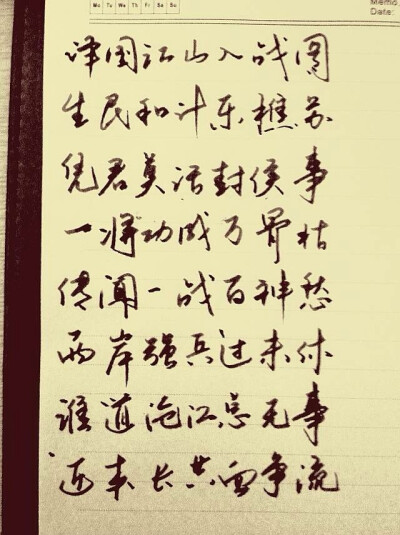 Mo Tu We Th Fr Sa Su
Memo
Date:
泽国江山入战图
生民和计乐樵苏
凭君莫话封侯事
一将功成万骨枯
传闻一战百神愁
两岸强兵过未休
谁道沧江总无事
近来长共血争流